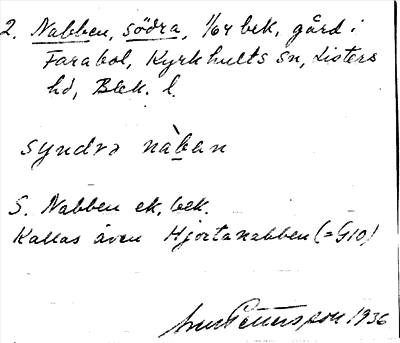 2. Nabben, södra, 1/64 bek, gård i
Farabol, Kyrkhults sn, Listers
hd, Blek. l.
syndrə nàban
S. Nabben ek. bek.
Kallas även Hjortanabben (=G10)
Pettersson 1936